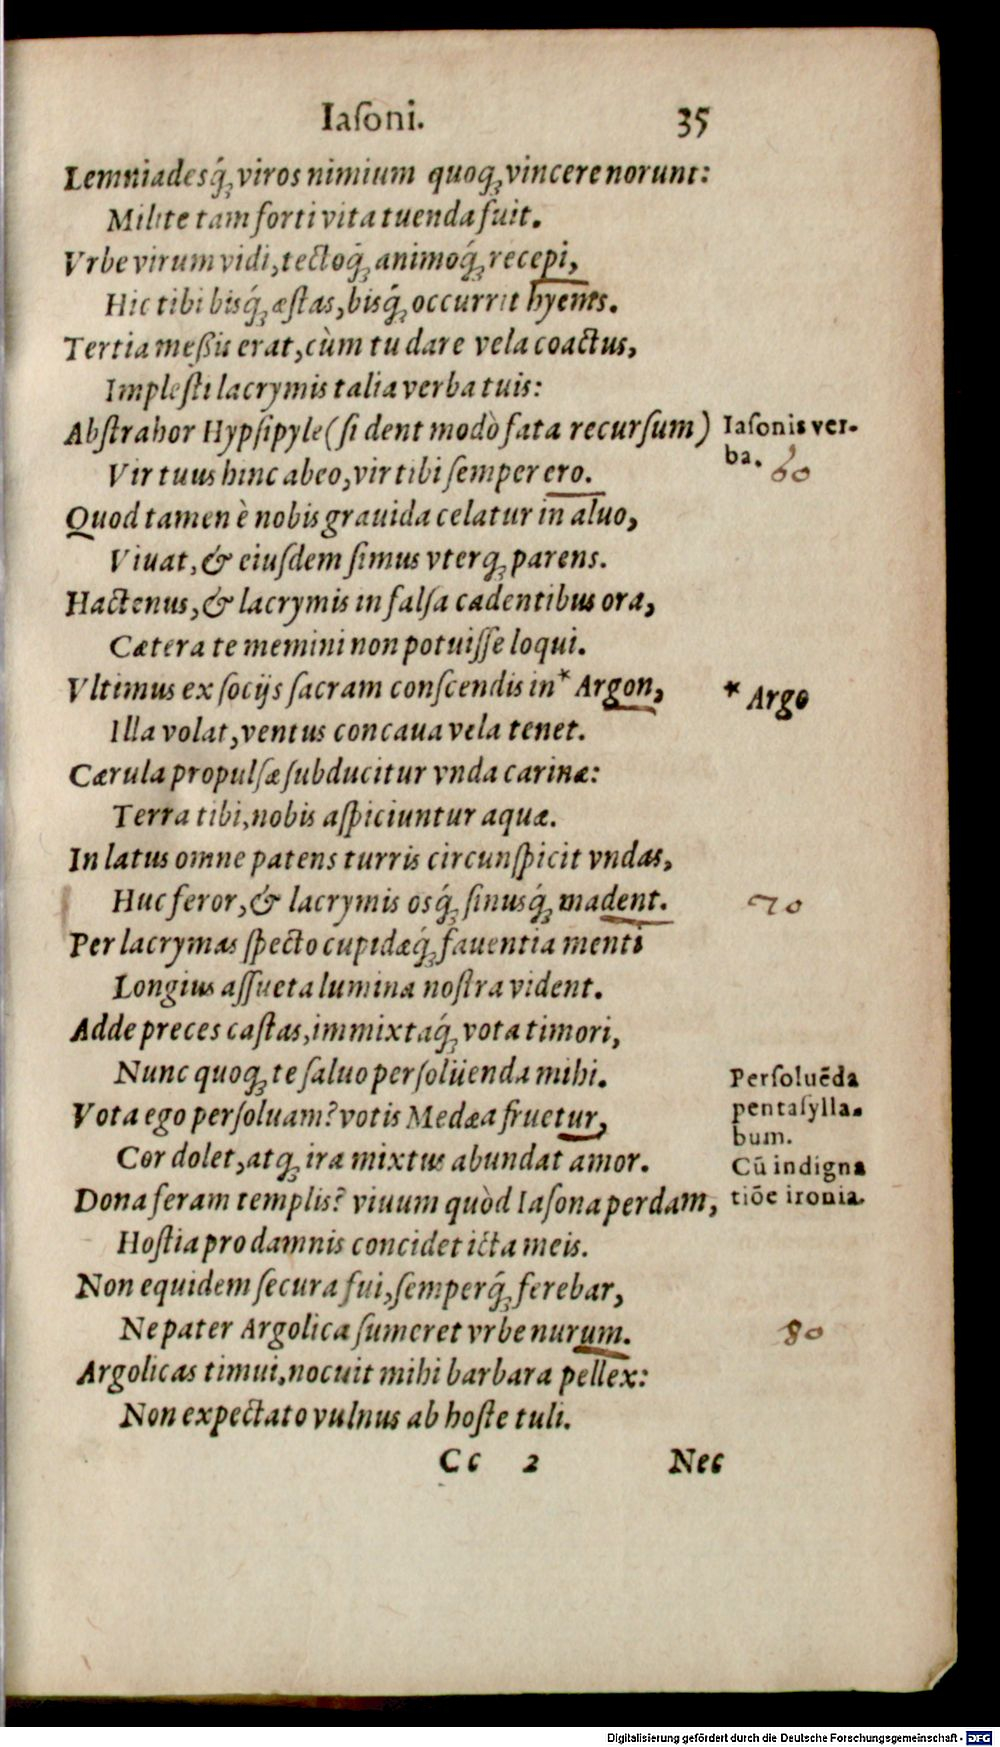 Iaſoni. 35
Lemniadesq́; viros nimium quoq; vincere norunt:
Milite tam forti vita tuenda fuit.
Vrbe virum vidi, tectoq́; animoq́; recepi,
Hic tibi bisq́; æſtas, bisq́; occurrit hyems.
Tertia meßis erat, cùm tu dare vela coactus,
Impleſti lacrymis talia verba tuis:
Abſtrahor Hypſipyle (ſi dent modò fata recurſum)
Iaſonis ver-
Vir tuus hinc abeo, vir tibi ſemper ero.
ba. 60
Quod tamen è nobis grauida celatur in aluo,
Viuat, & eiuſdem ſimus vterq; parens.
Hactenus, & lacrymis in falſa cadentibus ora,
Cætera te memini non potuiſſe loqui.
Vltimus ex ſocijs ſacram conſcendis in* Argon,
* Argo
Illa volat, ventus concaua vela tenet.
Cærula propulſæ ſubducitur vnda carinæ:
Terra tibi, nobis aſpiciuntur aquæ.
In latus omne patens turris circunſpicit vndas,
Huc feror, & lacrymis osq́; ſinusq́; madent.
70
Per lacrymas ſpecto cupidæq́; fauentia menti
Longius aſſueta lumina noſtra vident.
Adde preces caſtas, immixtaq́; vota timori,
Nunc quoq; te ſaluo perſolüenda mihi.
Perſoluēda
Vota ego perſoluam? votis Medæa fruetur,
pentaſylla-
bum.
Cor dolet, atq; ira mixtus abundat amor.
Cū indigna
Dona feram templis? viuum quòd Iaſona perdam,
tiōe ironia.
Hoſtia pro damnis concidet icta meis.
Non equidem ſecura fui, ſemperq́; ferebar,
Ne pater Argolica ſumeret vrbe nurum.
80
Argolicas timui, nocuit mihi barbara pellex:
Non expectato vulnus ab hoſte tuli.
Cc 2 Nec
Digitalisierung gefördert durch die Deutsche Forschungsgemeinschaft - DFG